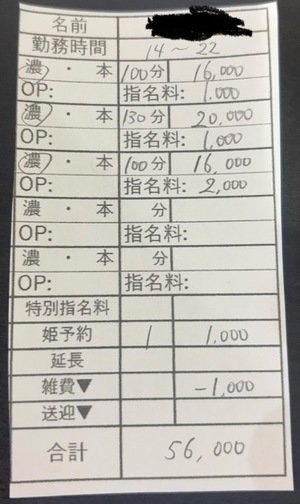 名前
勤務時間 14～22
濃・本 100分 16,000
OP: 指名料: 1,000
濃・本 130分 20,000
OP: 指名料: 1,000
濃・本 100分 16,000
OP: 指名料: 2,000
濃・本 分
OP: 指名料:
濃・本 分
OP: 指名料:
特別指名料
姫予約 1 1,000
延長
雑費▼ -1,000
送迎▼
合計 56,000